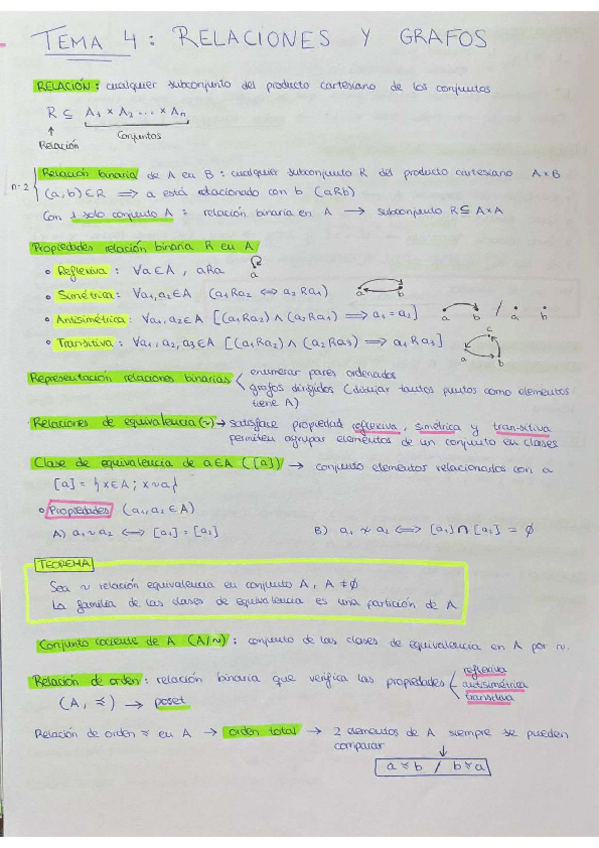 TEMA 4: RELACIONES Y GRAFOS
RELACIÓN: cualquier subconjunto del producto cartesiano de los conjuntos
R ⊆ A₁ × A₂ ... × Aₙ
↑ Conjuntos
Relación
n=2 { Relación binaria de A en B: cualquier subconjunto R del producto cartesiano A×B
(a,b) ∈ R ⟹ a está relacionado con b (aRb)
Con 1 solo conjunto A: relación binaria en A → subconjunto R ⊆ A×A
Propiedades relación binaria R en A
• Reflexiva: ∀a∈A, aRa a
• Simétrica: ∀a₁,a₂∈A (a₁Ra₂ ⟺ a₂Ra₁) a b
• Antisimétrica: ∀a₁,a₂∈A [(a₁Ra₂) ∧ (a₂Ra₁) ⟹ a₁=a₂] a b / a b
• Transitiva: ∀a₁,a₂,a₃∈A [(a₁Ra₂) ∧ (a₂Ra₃) ⟹ a₁Ra₃] a b c
Representación relaciones binarias < enumerar pares ordenados
grafos dirigidos (dibujar tantos puntos como elementos
tiene A)
Relaciones de equivalencia (~) → satisface propiedad reflexiva, simétrica y transitiva
permiten agrupar elementos de un conjunto en clases
Clase de equivalencia de a∈A ([a]) → conjunto elementos relacionados con a
[a] = {x∈A; x~a}
• Propiedades (a₁,a₂∈A)
A) a₁~a₂ ⟺ [a₁]=[a₂] B) a₁≁a₂ ⟺ [a₁]∩[a₂] = ∅
TEOREMA
Sea ~ relación equivalencia en conjunto A, A≠∅
La familia de las clases de equivalencia es una partición de A.
Conjunto cociente de A (A/~): conjunto de las clases de equivalencia en A por ~.
Relación de orden: relación binaria que verifica las propiedades < reflexiva
antisimétrica
transitiva
(A, ≼) → poset
Relación de orden ≼ en A → orden total → 2 elementos de A siempre se pueden
comparar
↓
a≼b / b≼a